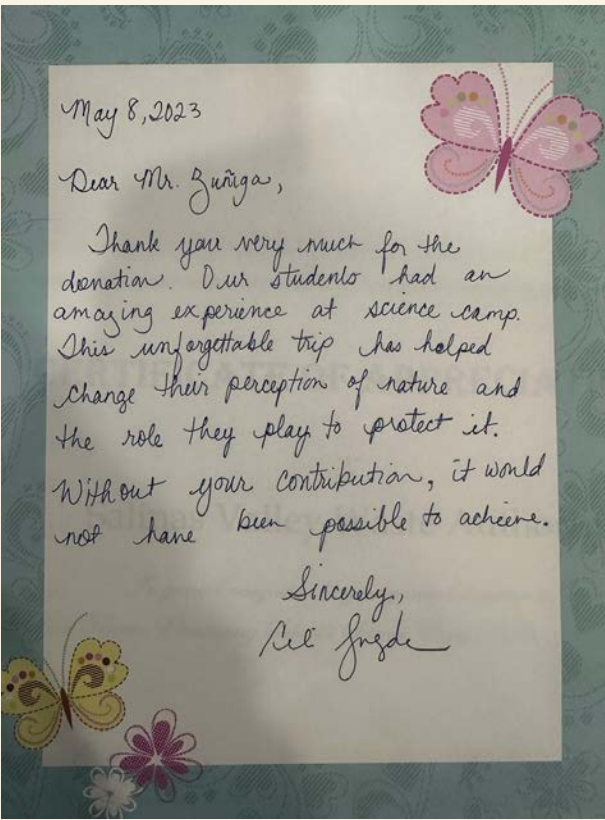 May 8, 2023
Dear Mr. Zuñiga,
Thank you very much for the
donation. Our students had an
amazing experience at science camp.
This unforgettable trip has helped
change their perception of nature and
the role they play to protect it.
Without your contribution, it would
not have been possible to achieve.
Sincerely,